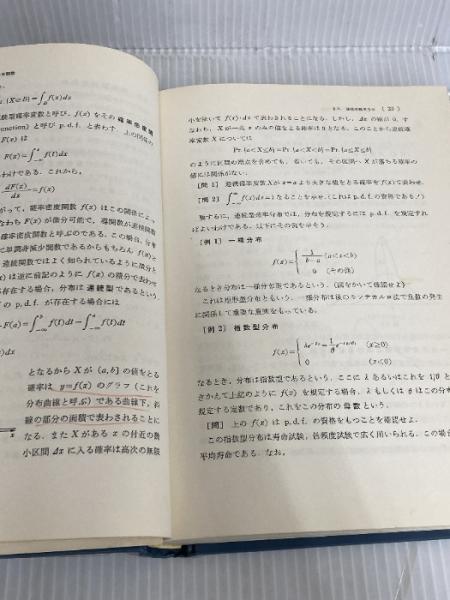 (X≧b)=∫f(x)dx
続型確率変数と呼び, f(x) をその 確率密度関
nction) と呼び p.d.f. と表わす. 上の関係の
F(x)は
F(x)=∫f(t)dx
わけである. これから,
dF(x)/dx=f(x)
がって, 確率密度関数 f(x) はこの関係によっ
なわち F(x) が微分可能で, 導関数が連続関数
確率密度関数と呼ぶのである. この場合, 分布
に単調非減少関数であるからもちろん f(x)≧
連続関数ではよく知られているように微分と
(x) は逆に前記のように f(x) の積分で表わす
が存在する場合には, 分布は連続型であるという
の p.d.f. が存在する場合には
F(a)=∫f(t)dt−∫f(t)dt
x)dx
となるから X が (a, b] の値をとる
確率は y=f(x) のグラフ (これを
分布曲線と呼ぶ) である曲線下, 斜
線の部分の面積で表わされることに
なる. また X がある x の付近の微
小区間 Δx に入る確率は高次の無限
( 23 )
小を除いて f(x)・dx で表わされることになる. しかし, dx の値が 0, す
なわち, X が一点 x のみの値をとる確率は 0 となる. このことから連続確
率変数 X については
Pr.{a<X≦b}=Pr.{a<X<b}=Pr.{a≦X≦b}
のように区間の端点を含めても, 省いても, その区間へ X が落ちる確率の
値には関係がない.
[問 1] 連続確率変数Xが x=a より大きな値をとる確率を f(x) で表わせ.
[問 2] ∫f(x)dx=1 なることを示せ. (これは p.d.f. の資格である!)
要するに, 連続型確率分布では, 分布を規定するには p.d.f. を規定すれ
ばよいわけである. 以下にその例を示そう.
[例 1] 一様分布
f(x)={ 1/(b−a) (a<x<b)
0 (その他)
なるとき分布は一様分布型であるという. (図をかいて確認せよ)
これは矩形型分布ともいう. 一様分布は後のモンテカルロ法で乱数の発生
に関係して重要な意味をもっている.
[例 2] 指数型分布
(x≧0)
0 (x<0)
なるとき, 分布は指数型であるという. ここに λ あるいはこれを 1/θ と
きかえて上記のように f(x) を規定する場合, λ もしくは θ はこの分布
規定する定数であり, これをこの分布の母数という.
[問] 上の f(x) は p.d.f. の資格をもつことを確認せよ.
この指数型分布は寿命試験, 信頼度試験で広く用いられる. この場合
平均寿命である. なお,